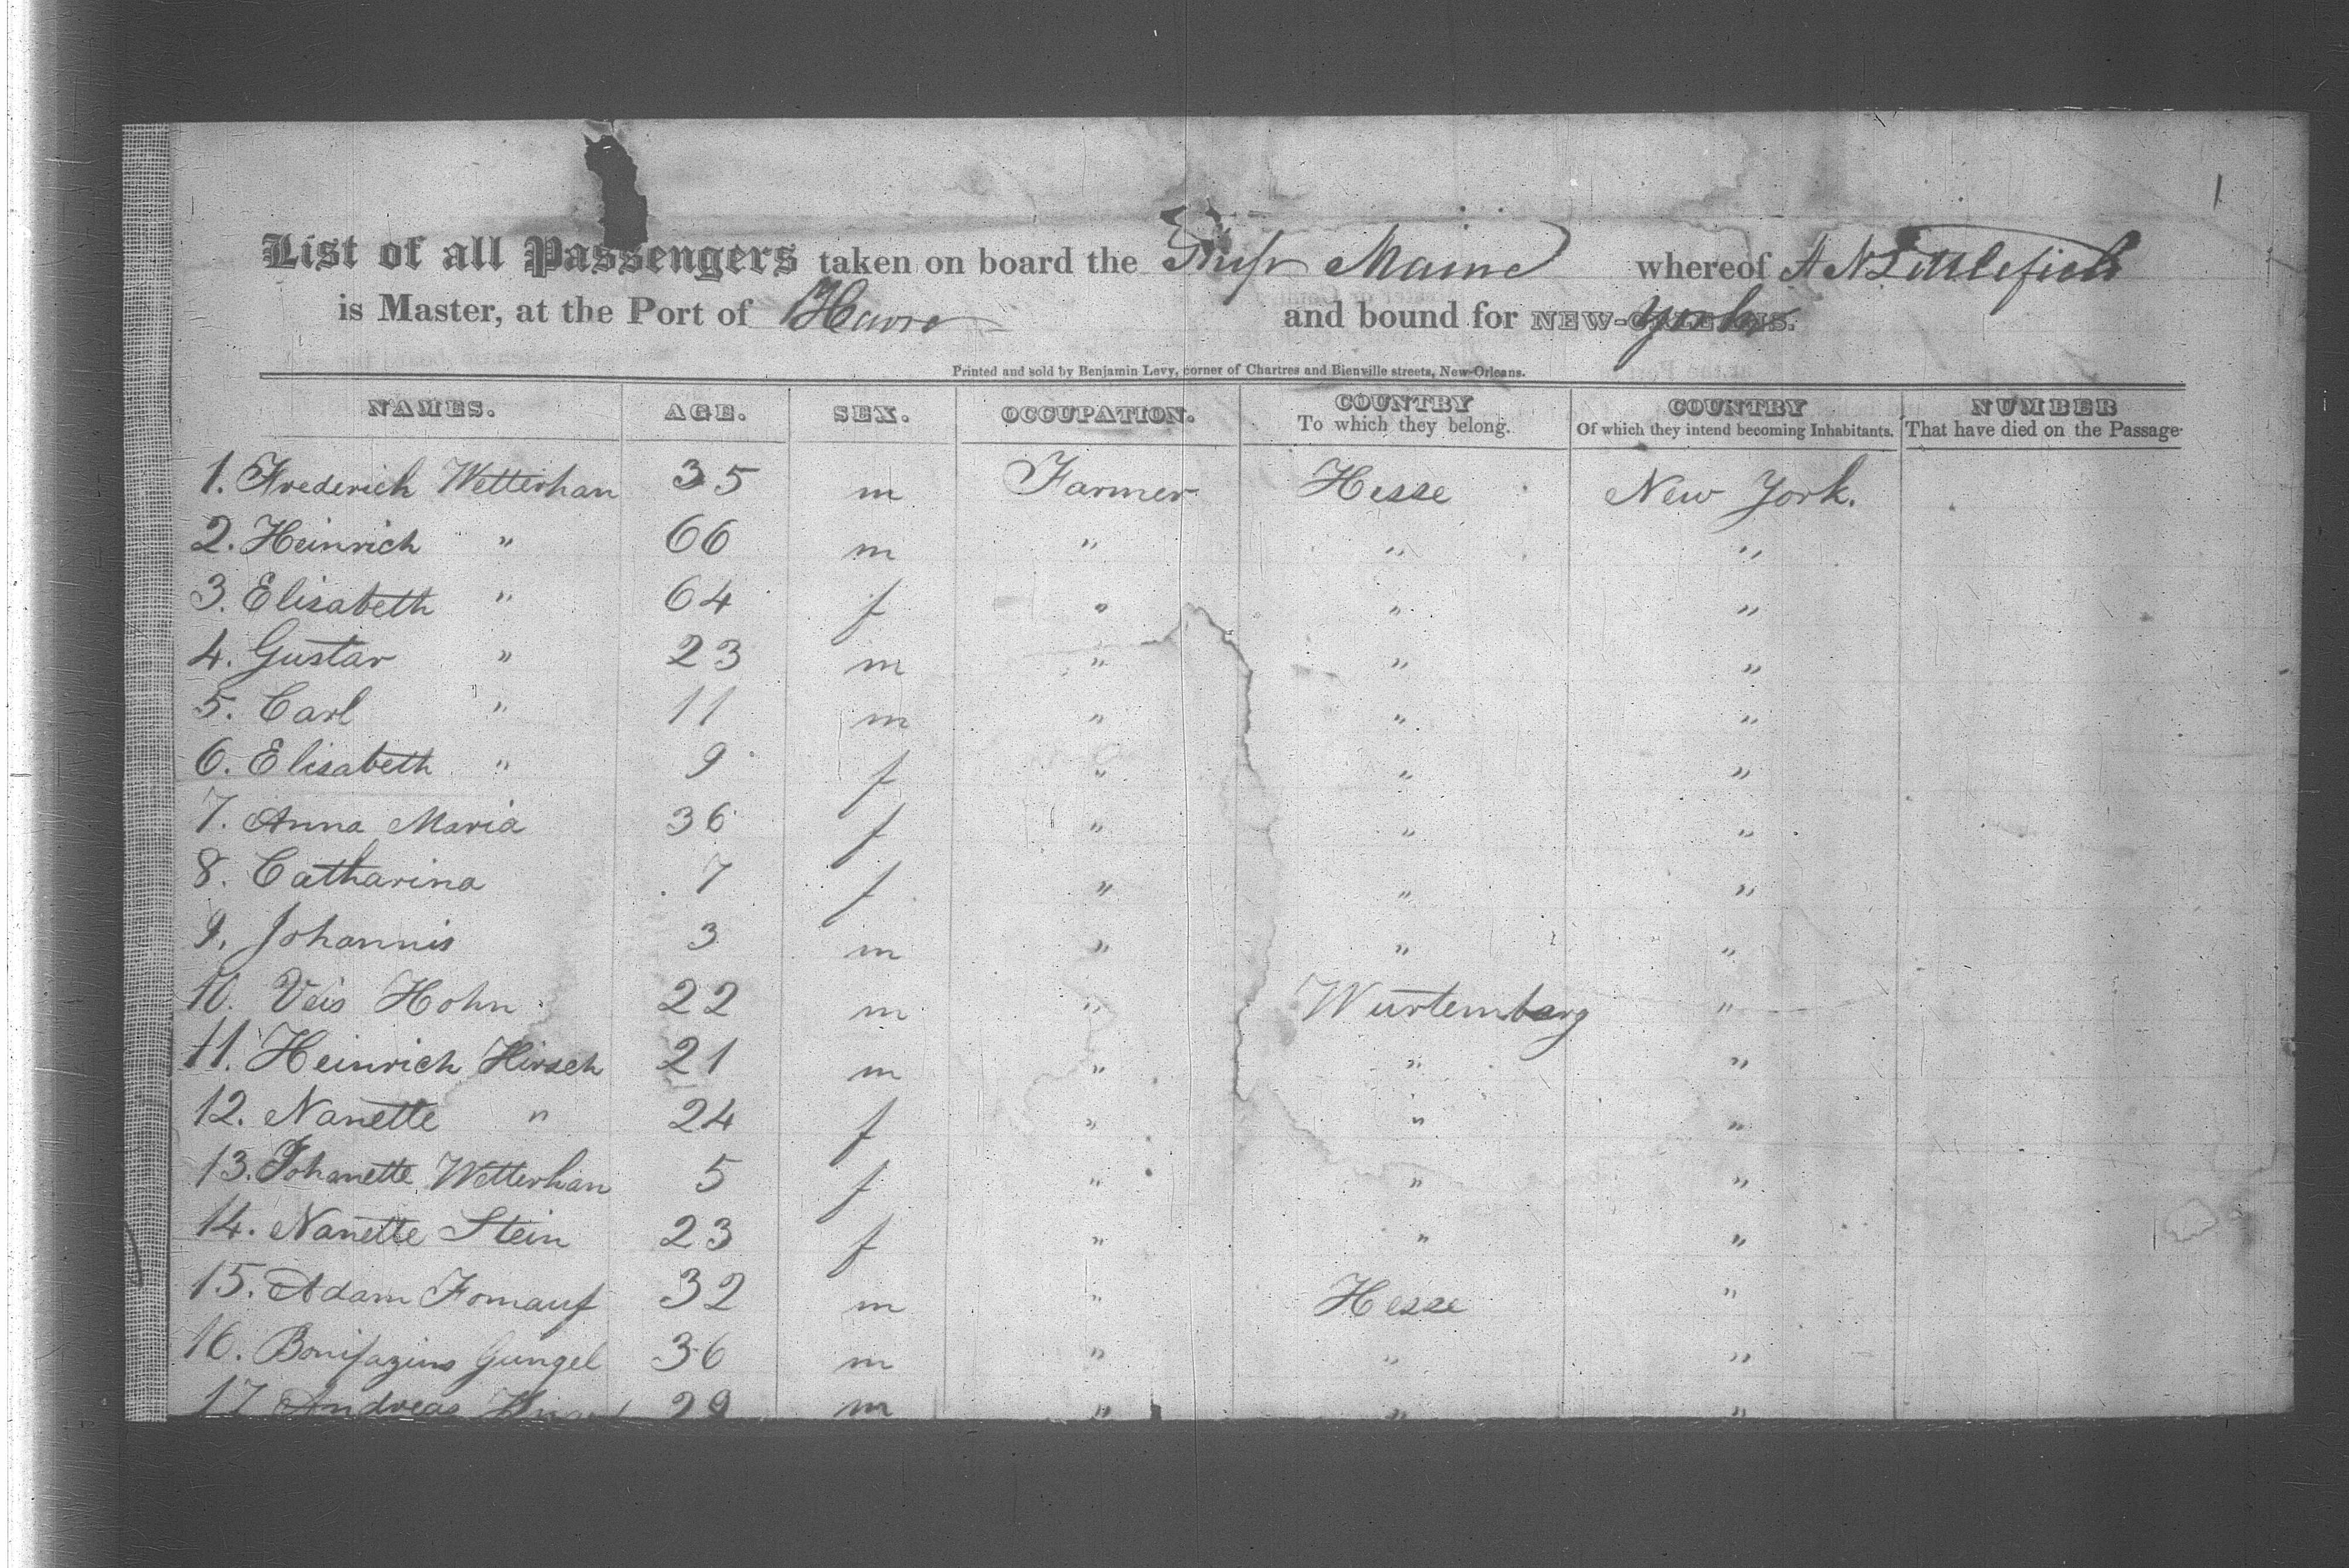 1
List of all Passengers taken on board the Ship Maine whereof A N Littlefield
is Master, at the Port of Havre and bound for NEW-ORLEANS. York
Printed and sold by Benjamin Levy, corner of Chartres and Bienville streets, New-Orleans.
NAMES. AGE. SEX. OCCUPATION. COUNTRY To which they belong. COUNTRY Of which they intend becoming Inhabitants. NUMBER That have died on the Passage
1. Frederich Wetterhan 35 m Farmer Hesse New York.
2. Heinrich " 66 m " " "
3. Elisabeth " 64 f " " "
4. Gustav " 23 m " " "
5. Carl " 11 m " " "
6. Elisabeth " 9 f " " "
7. Anna Maria 36 f " " "
8. Catharina 7 f " " "
9. Johannis 3 m " " "
10. Veis Hohn 22 m " Wurtemberg "
11. Heinrich Hirsch 21 m " " "
12. Nanette " 24 f " " "
13. Johanette Wetterhan 5 f " " "
14. Nanette Stein 23 f " " "
15. Adam Fomauf 32 m " Hesse "
16. Bonifazius Gungel 36 m " " "
17 Andreas 29 m " " "